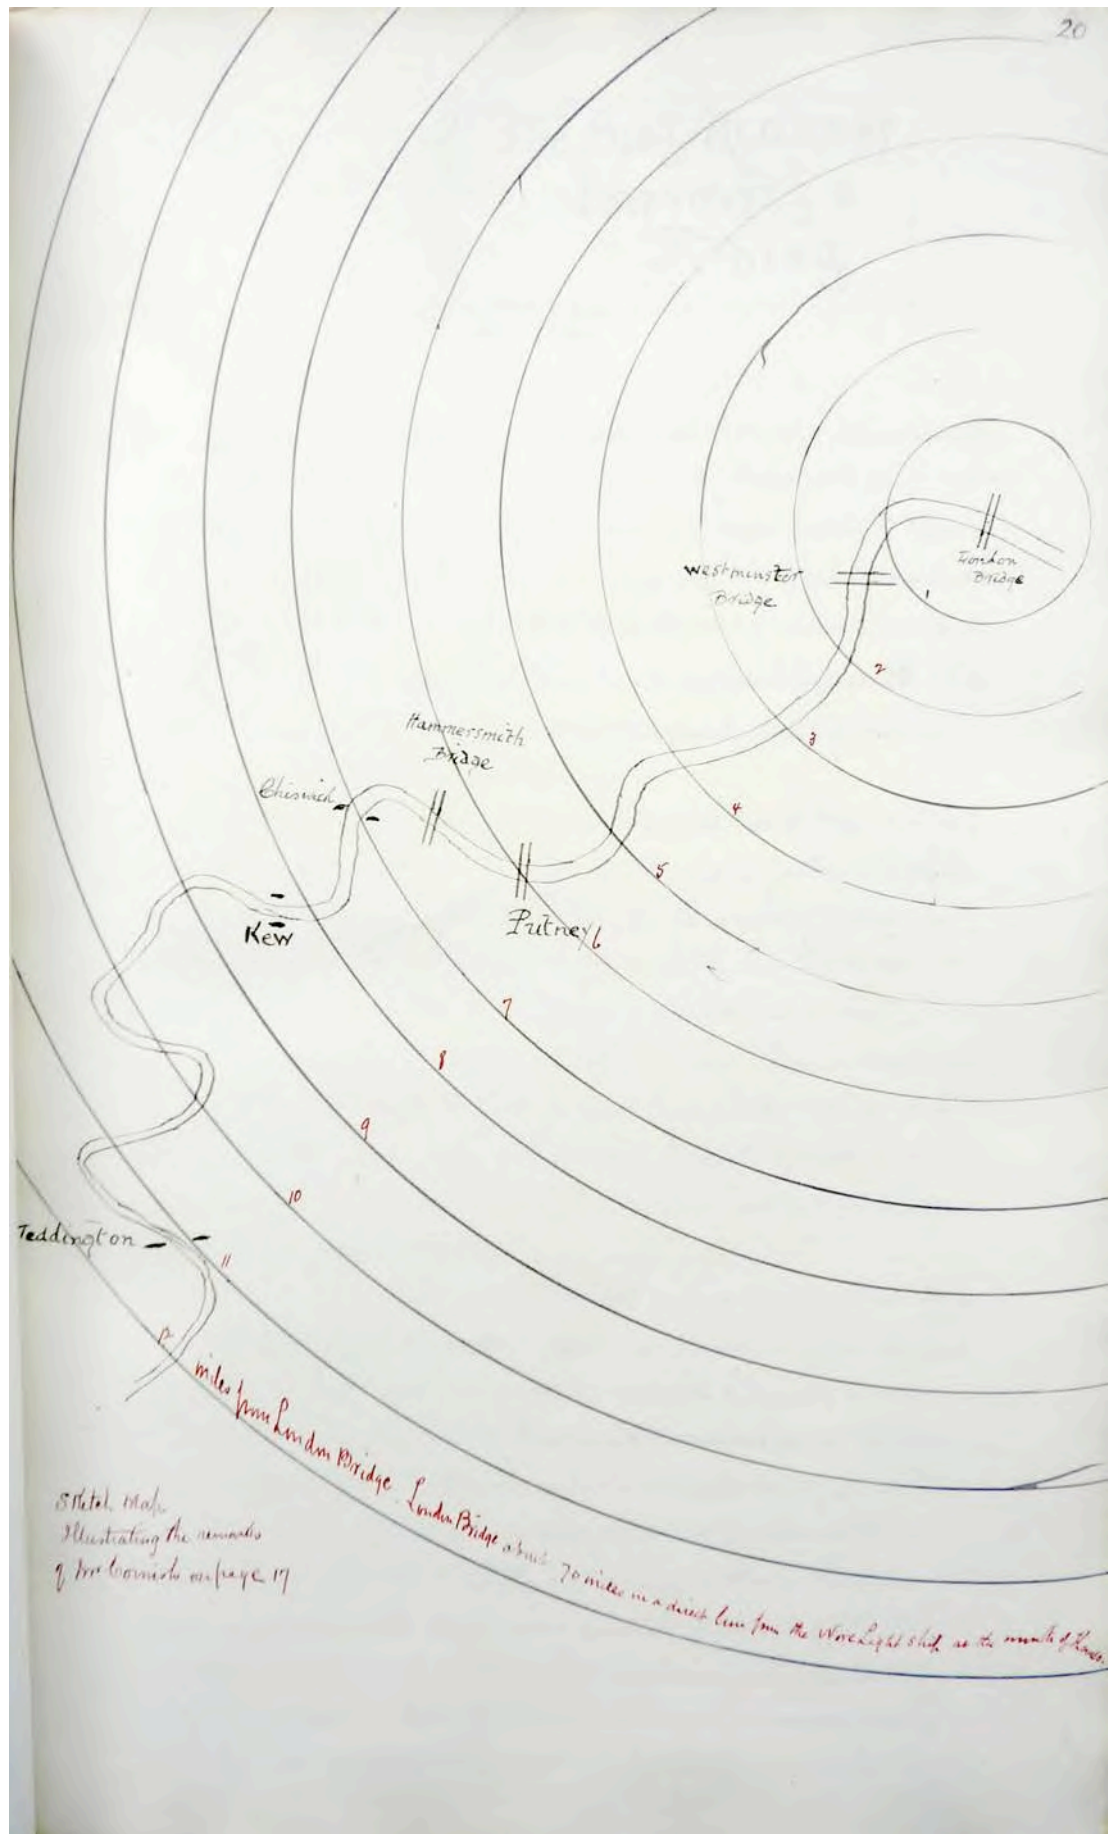 20
London
Bridge
Westminster
Bridge
1
2
3
4
5
6
7
8
9
10
11
12
Hammersmith
Bridge
Chiswick
Putney
Kew
Teddington
miles from London Bridge. London Bridge about 70 miles in a direct line from the Nore Light Ship at the mouth of Thames.
Sketch Map
Illustrating the remarks
of Mr Cornish on page 17